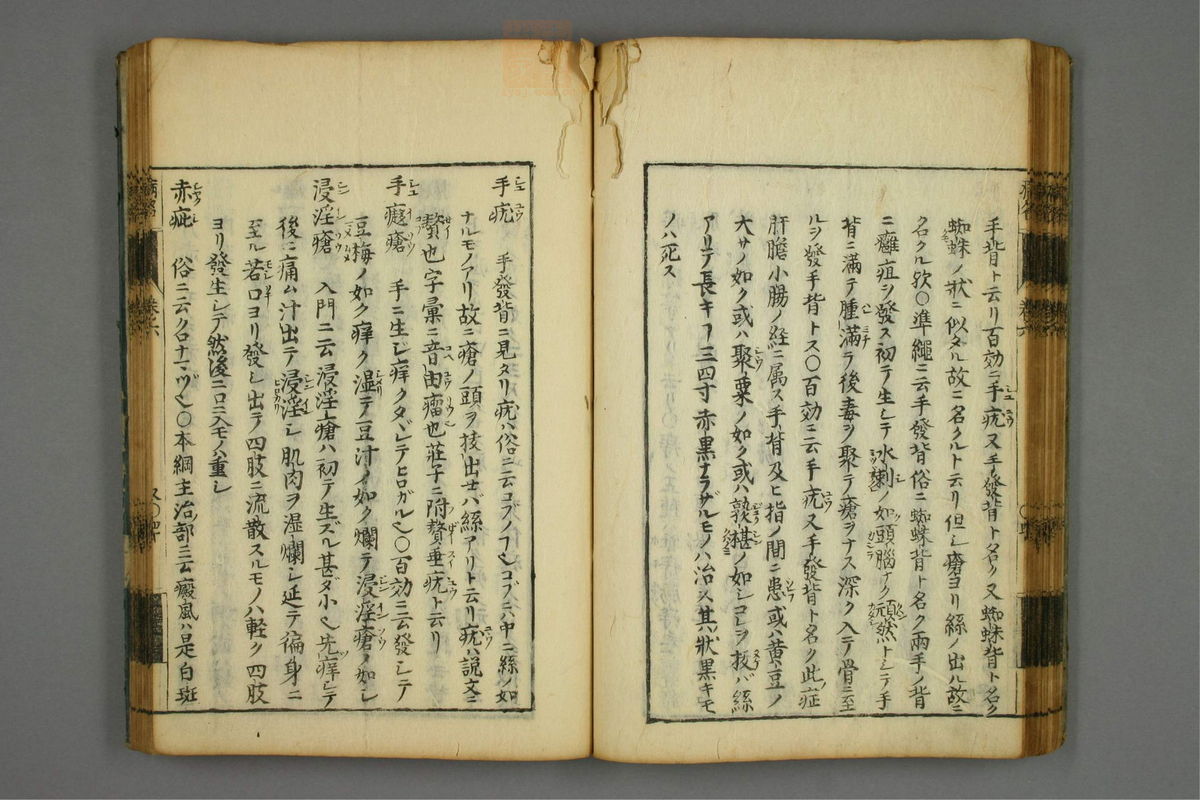 手背ト云リ百効ニ手疣又手發背ト名ク又蜘蛛背ト名ク
蜘蛛ノ状ニ似タル故ニ名クルト云リ但シ瘡ヨリ絲ノ出ル故ニ
名クル欤〇準繩ニ云手發背俗ニ蜘蛛背ト名ク兩手ノ背
ニ癰疽ヲ發ス初テ生シテ水刺ノ如頭腦ナク頑然トシテ手
背ニ満テ腫満ラ後毒ヲ聚テ瘡ヲナス深ク入テ骨ニ至
ルヲ發手背トス〇百効ニ云手疣又手發背ト名ク此症
肝膽小腸ノ経ニ属ス手背及ヒ指ノ間ニ患或ハ黄豆ノ
大サノ如ク或ハ聚粟ノ如ク或ハ熟椹ノ如シコレヲ抜バ絲
アリテ長キヿ三四寸赤黒ナラザルモノハ治ス其状黒キモ
ノハ死ス
手疣 手發背ニ見タリ疣ハ俗ニ云コブノヿ也コブニハ中ニ絲ノ如
ナルモノアリ故ニ瘡ノ頭ヲ抜出セバ絲アリト云リ疣ハ説文ニ
贅也字彙ニ音由瘤也荘子ニ附贅垂疣ト云リ
手癦瘡 手ニ生ジ痒クタヾレテヒロガル也〇百効ニ云發シテ
豆梅ノ如ク痒ク湿テ豆汁ノ如ク爛テ浸淫瘡ノ如シ
浸淫瘡 入門ニ云浸淫瘡ハ初テ生ズル甚ダ小也先痒シテ
後ニ痛ム汁出テ浸淫シ肌肉ヲ湿爛シ延テ徧身ニ
至ル若口ヨリ發シ出テ四肢ニ流散スルモノハ軽ク四肢
ヨリ發生シテ然後ニ口ニ入モノハ重シ
赤疵 俗ニ云クロナマヅ也〇本綱主治部ニ云癜風ハ是白斑
巻六